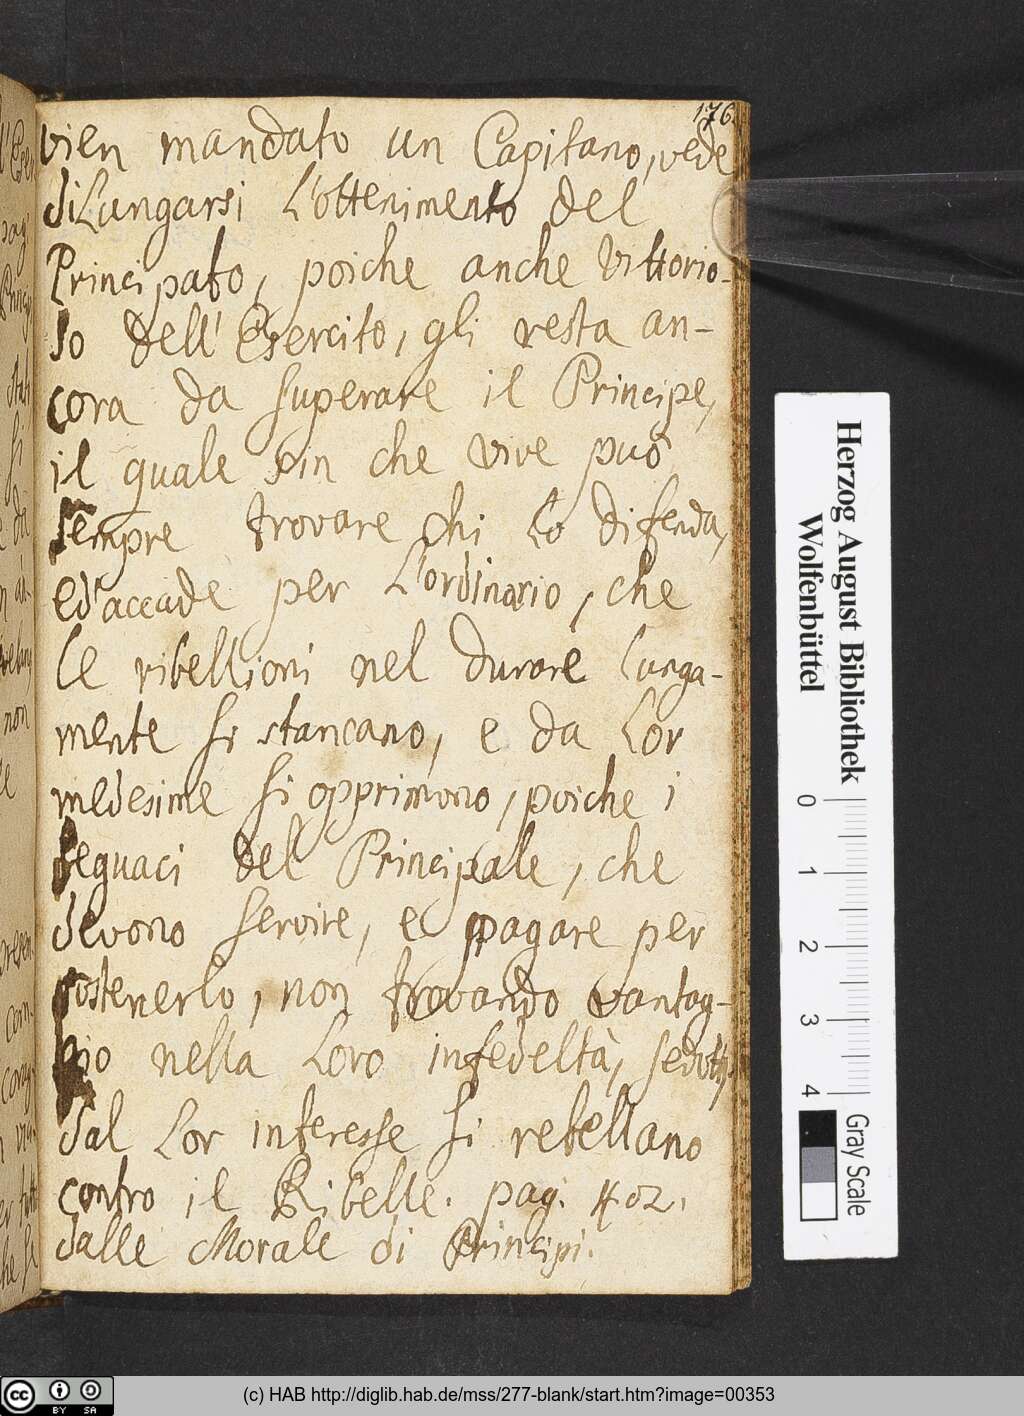 176.
vien mandato un Capitano, vede
diLungarsi L'ottenimento del
Principato, poiche anche Vittorio-
so dell'Esercito, gli resta an-
cora da superare il Principe,
il quale sin che vive può
sempre trovare chi Lo difenda,
ed'accade per L'ordinario, che
Le ribellioni nel durare Lunga-
mente si stancano, e da Lor
medesime si opprimono, poiche i
seguaci del Principale, che
devono servire, e pagare per
sostenerlo, non trovando vantag-
gio nella Loro infedeltà, sedotti
dal Lor interesse si rebellano
contro il Ribelle. pag. 402.
dalle Morale di Principi.
Herzog August Bibliothek
Wolfenbüttel
0 1 2 3 4
Gray Scale
cc BY SA
(c) HAB http://diglib.hab.de/mss/277-blank/start.htm?image=00353